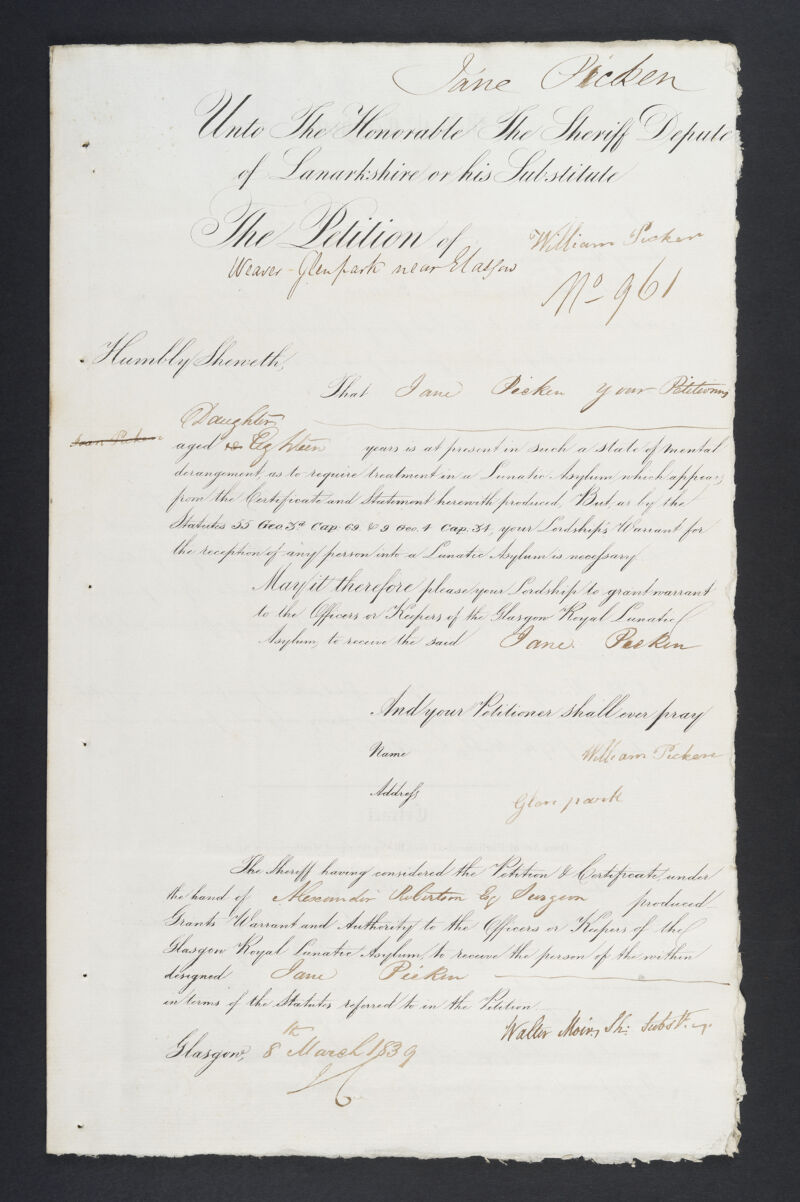 Jane Picken
Unto The Honorable The Sheriff Depute
of Lanarkshire or his Substitute
The Petition of William Picken
Weaver Glenpark near Glasgow
No 961
Humbly Sheweth,
That Jane Picken your Petitioners
Daughter
aged Eighteen years is at present in such a state of mental
derangement, as to require treatment in a Lunatic Asylum, which appears
from the Certificate and Statement herewith produced. But, as by the
Statutes 55 Geo. 3d Cap. 69. & 9 Geo. 4 Cap. 34, your Lordship's Warrant for
the reception of any person into a Lunatic Asylum is necessary.
May it therefore please your Lordship to grant warrant
to the Officers or Keepers of the Glasgow Royal Lunatic
Asylum, to receive the said Jane Picken
And your Petitioner shall ever pray
Name William Picken
Address Glenpark
The Sheriff having considered the Petition & Certificate, under
the hand of Alexander Robertson Esq Surgeon produced
Grants Warrant and Authority to the Officers or Keepers of the
Glasgow Royal Lunatic Asylum, to receive the person of the within
designed Jane Picken
in terms of the Statutes referred to in the Petition.
Walter Moir, Sh: Subst.
Glasgow, 8th March 1839